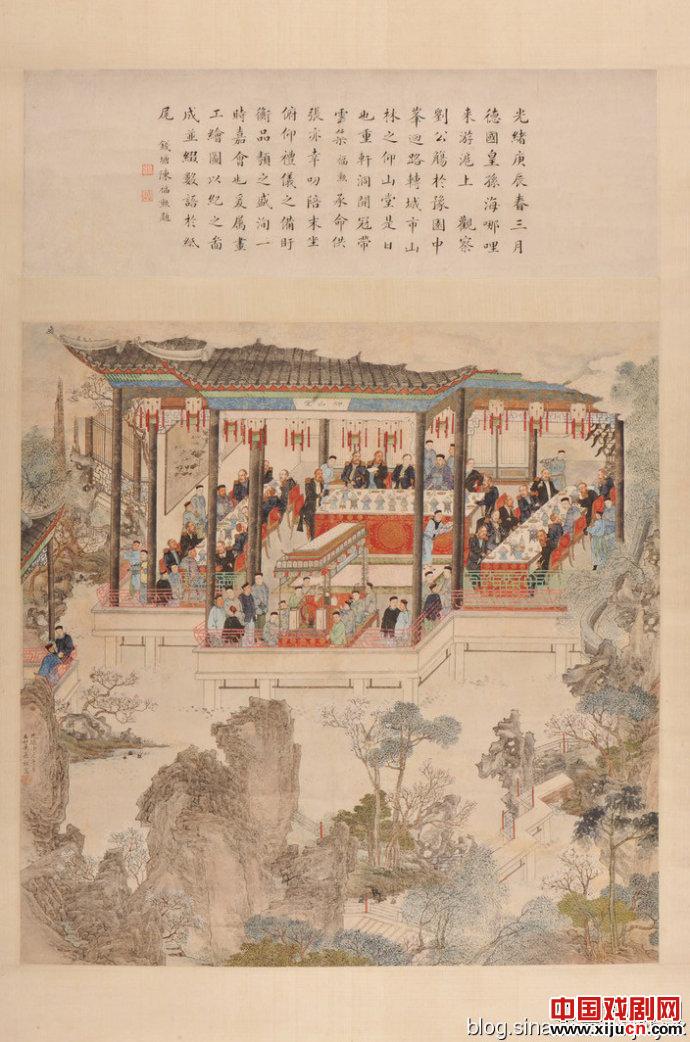 光緒庚辰春三月
德國皇孫海哪哩
來游滬上 觀察
劉公觴於豫園中
峯迴路轉城市山
林之仰山堂是日
也重軒洞開冠帶
雲 福勲承命供
張亦幸叨陪末坐
俯仰禮儀之備盱
衡品類之盛洵一
時嘉會也爰属畫
工繪圖以紀之啚
成並綴數語於紙
尾 錢塘陳福勲題
仰山堂
中国戏剧网
www.xijucn.com
blog.sina